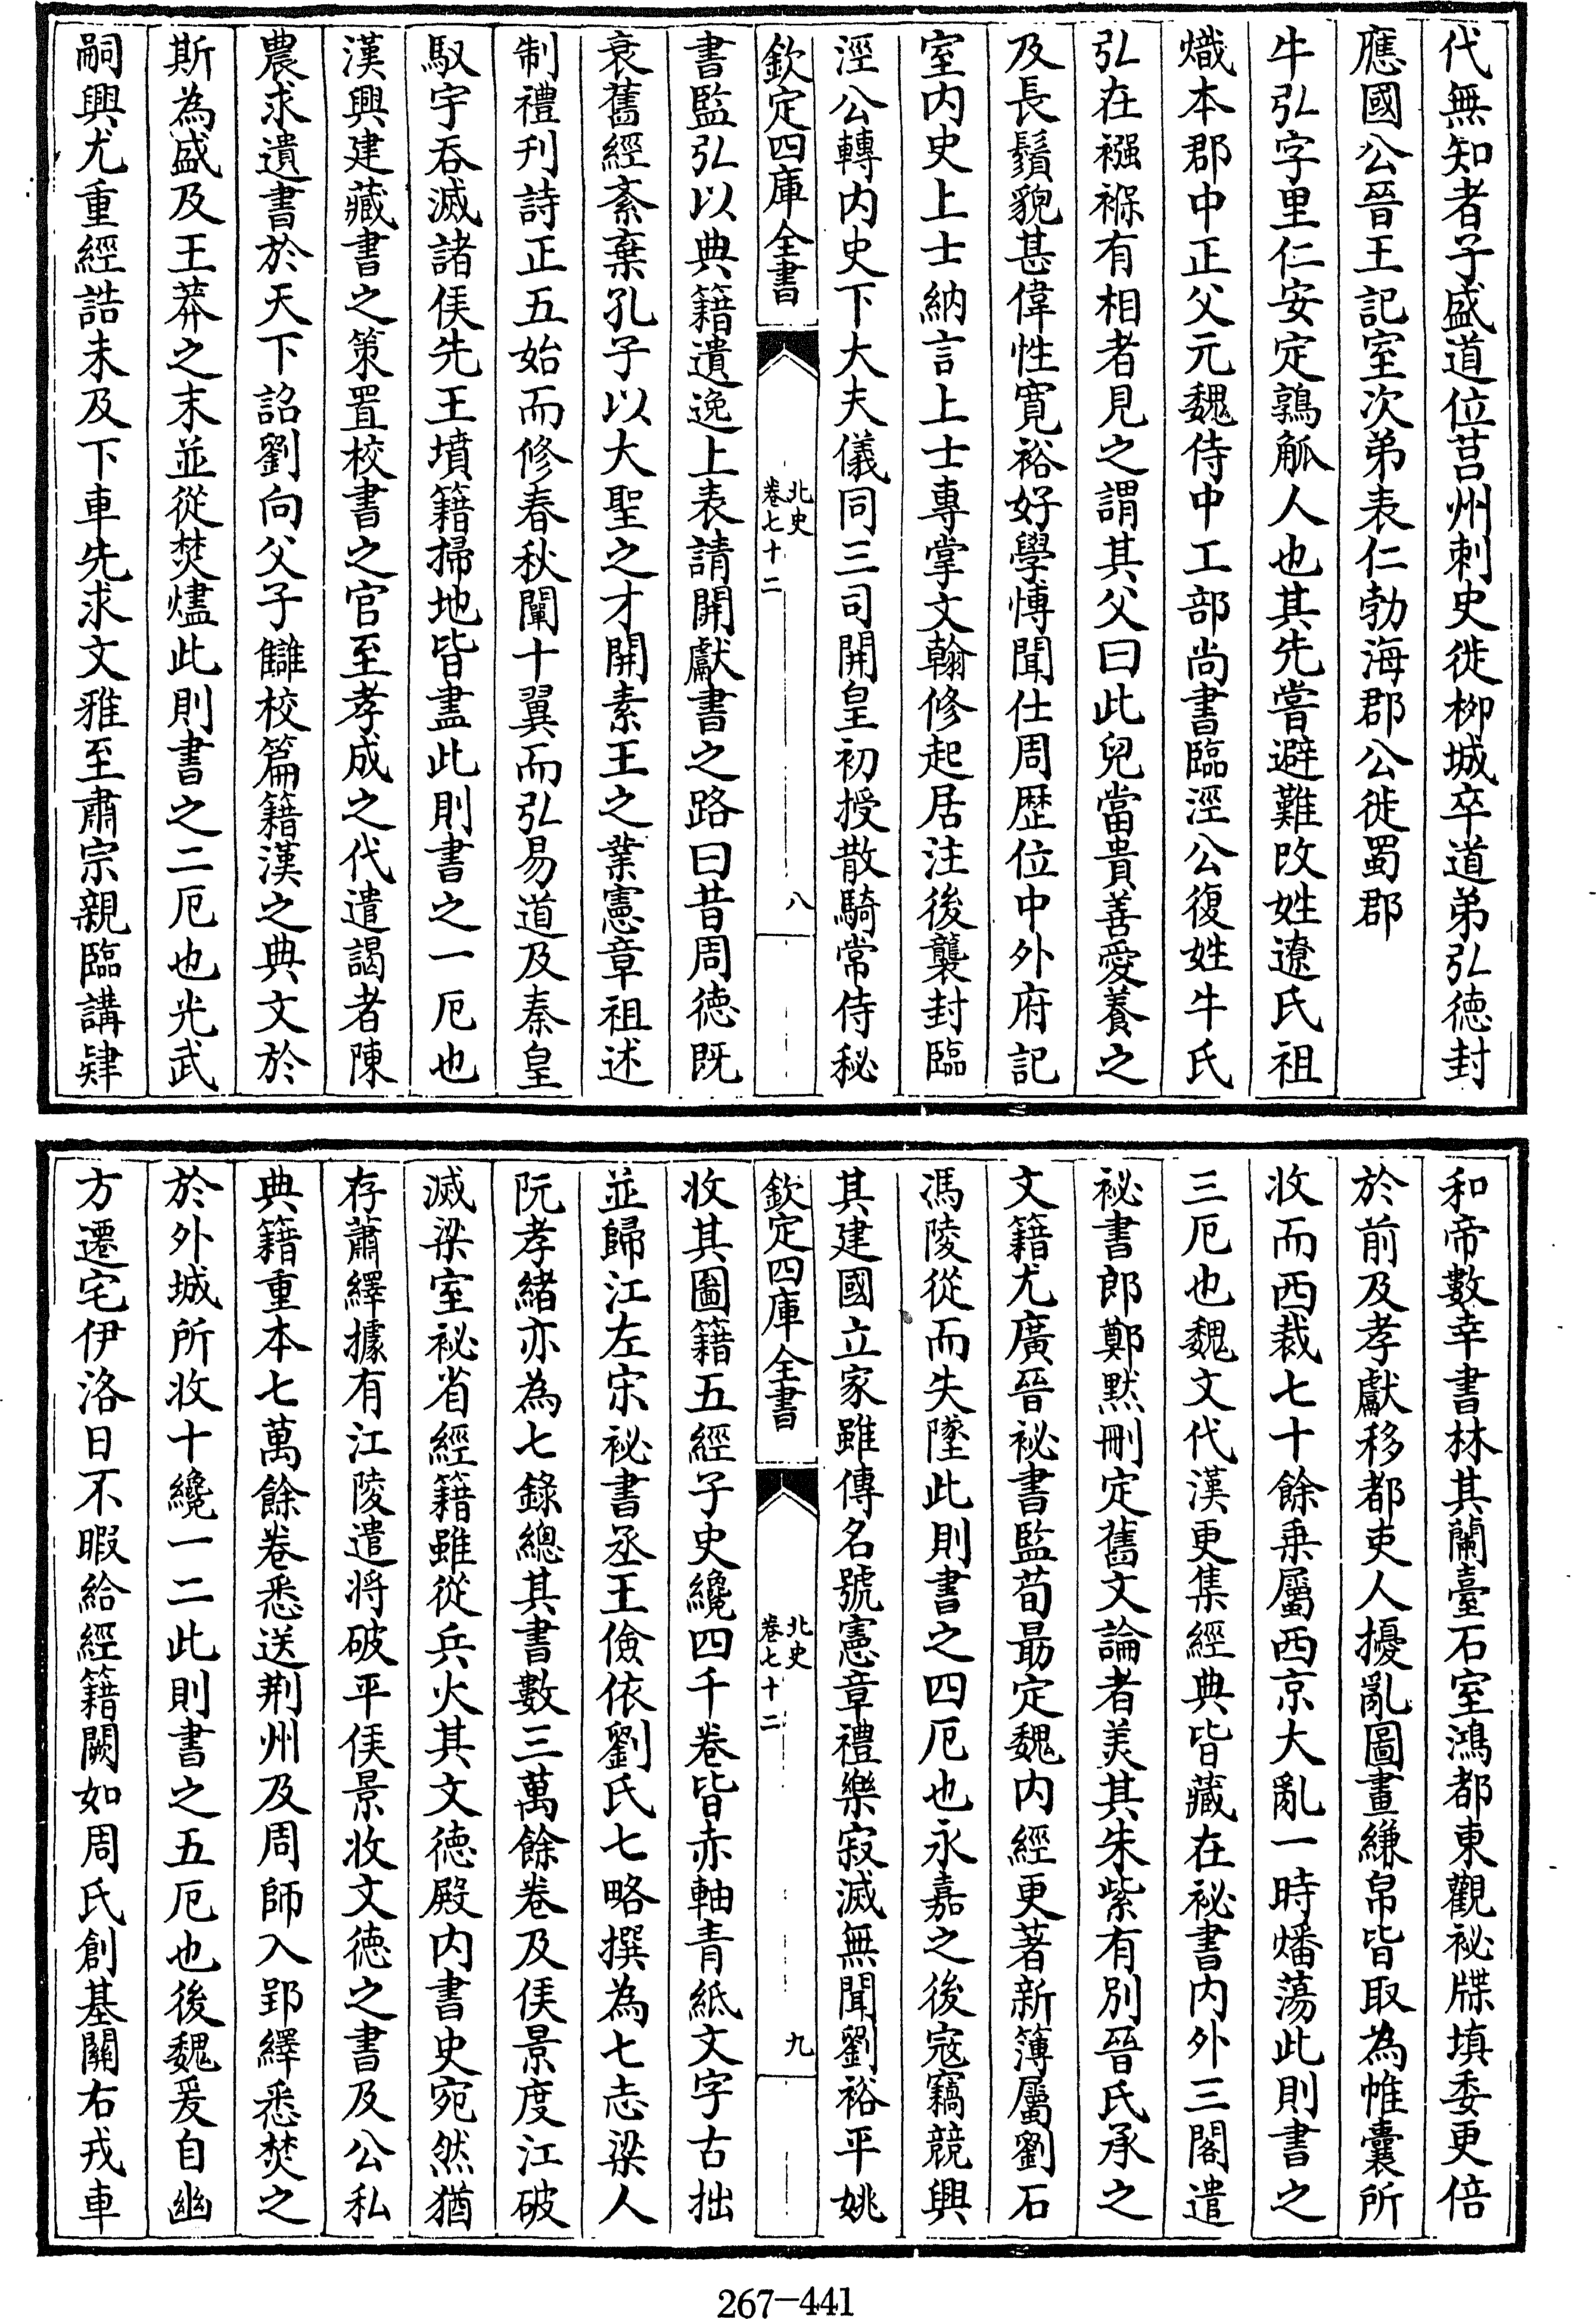 代無知者子盛道位莒州刺史徙柳城卒道弟弘徳封
應國公晉王記室次弟表仁勃海郡公徙蜀郡
牛弘字里仁安定鶉觚人也其先嘗避難改姓遼氏祖
熾本郡中正父元魏侍中工部尚書臨涇公復姓牛氏
弘在襁褓有相者見之謂其父曰此兒當貴善愛養之
及長鬚貌甚偉性寛裕好學博聞仕周歴位中外府記
室内史上士納言上士專掌文翰修起居注後襲封臨
涇公轉内史下大夫儀同三司開皇初授散騎常侍秘
欽定四庫全書
北史
卷七十二
八
書監弘以典籍遺逸上表請開獻書之路曰昔周徳既
衰舊經紊棄孔子以大聖之才開素王之業憲章祖述
制禮刊詩正五始而修春秋闡十翼而弘易道及秦皇
馭宇吞滅諸侯先王墳籍掃地皆盡此則書之一厄也
漢興建藏書之策置校書之官至孝成之代遣謁者陳
農求遺書於天下詔劉向父子讎校篇籍漢之典文於
斯為盛及王莽之末並從焚燼此則書之二厄也光武
嗣興尤重經誥未及下車先求文雅至肅宗親臨講肄
和帝數幸書林其蘭臺石室鴻都東觀祕牒填委更倍
於前及孝獻移都吏人擾亂圖畫縑帛皆取為帷囊所
收而西裁七十餘乗屬西京大亂一時燔蕩此則書之
三厄也魏文代漢更集經典皆藏在祕書内外三閣遣
祕書郎鄭黙刪定舊文論者美其朱紫有别晉氏承之
文籍尤廣晉祕書監荀勗定魏内經更著新簿屬劉石
馮陵從而失墜此則書之四厄也永嘉之後寇竊競興
其建國立家雖傳名號憲章禮樂寂滅無聞劉裕平姚
欽定四庫全書
北史
卷七十二
九
收其圖籍五經子史纔四千卷皆赤軸青紙文字古拙
並歸江左宋祕書丞王儉依劉氏七略撰為七志梁人
阮孝緒亦為七錄總其書數三萬餘卷及侯景度江破
滅梁室祕省經籍雖從兵火其文徳殿内書史宛然猶
存蕭繹據有江陵遣将破平侯景收文徳之書及公私
典籍重本七萬餘卷悉送荆州及周師入郢繹悉焚之
於外城所收十纔一二此則書之五厄也後魏爰自幽
方遷宅伊洛日不暇給經籍闕如周氏創基關右戎車
267-441